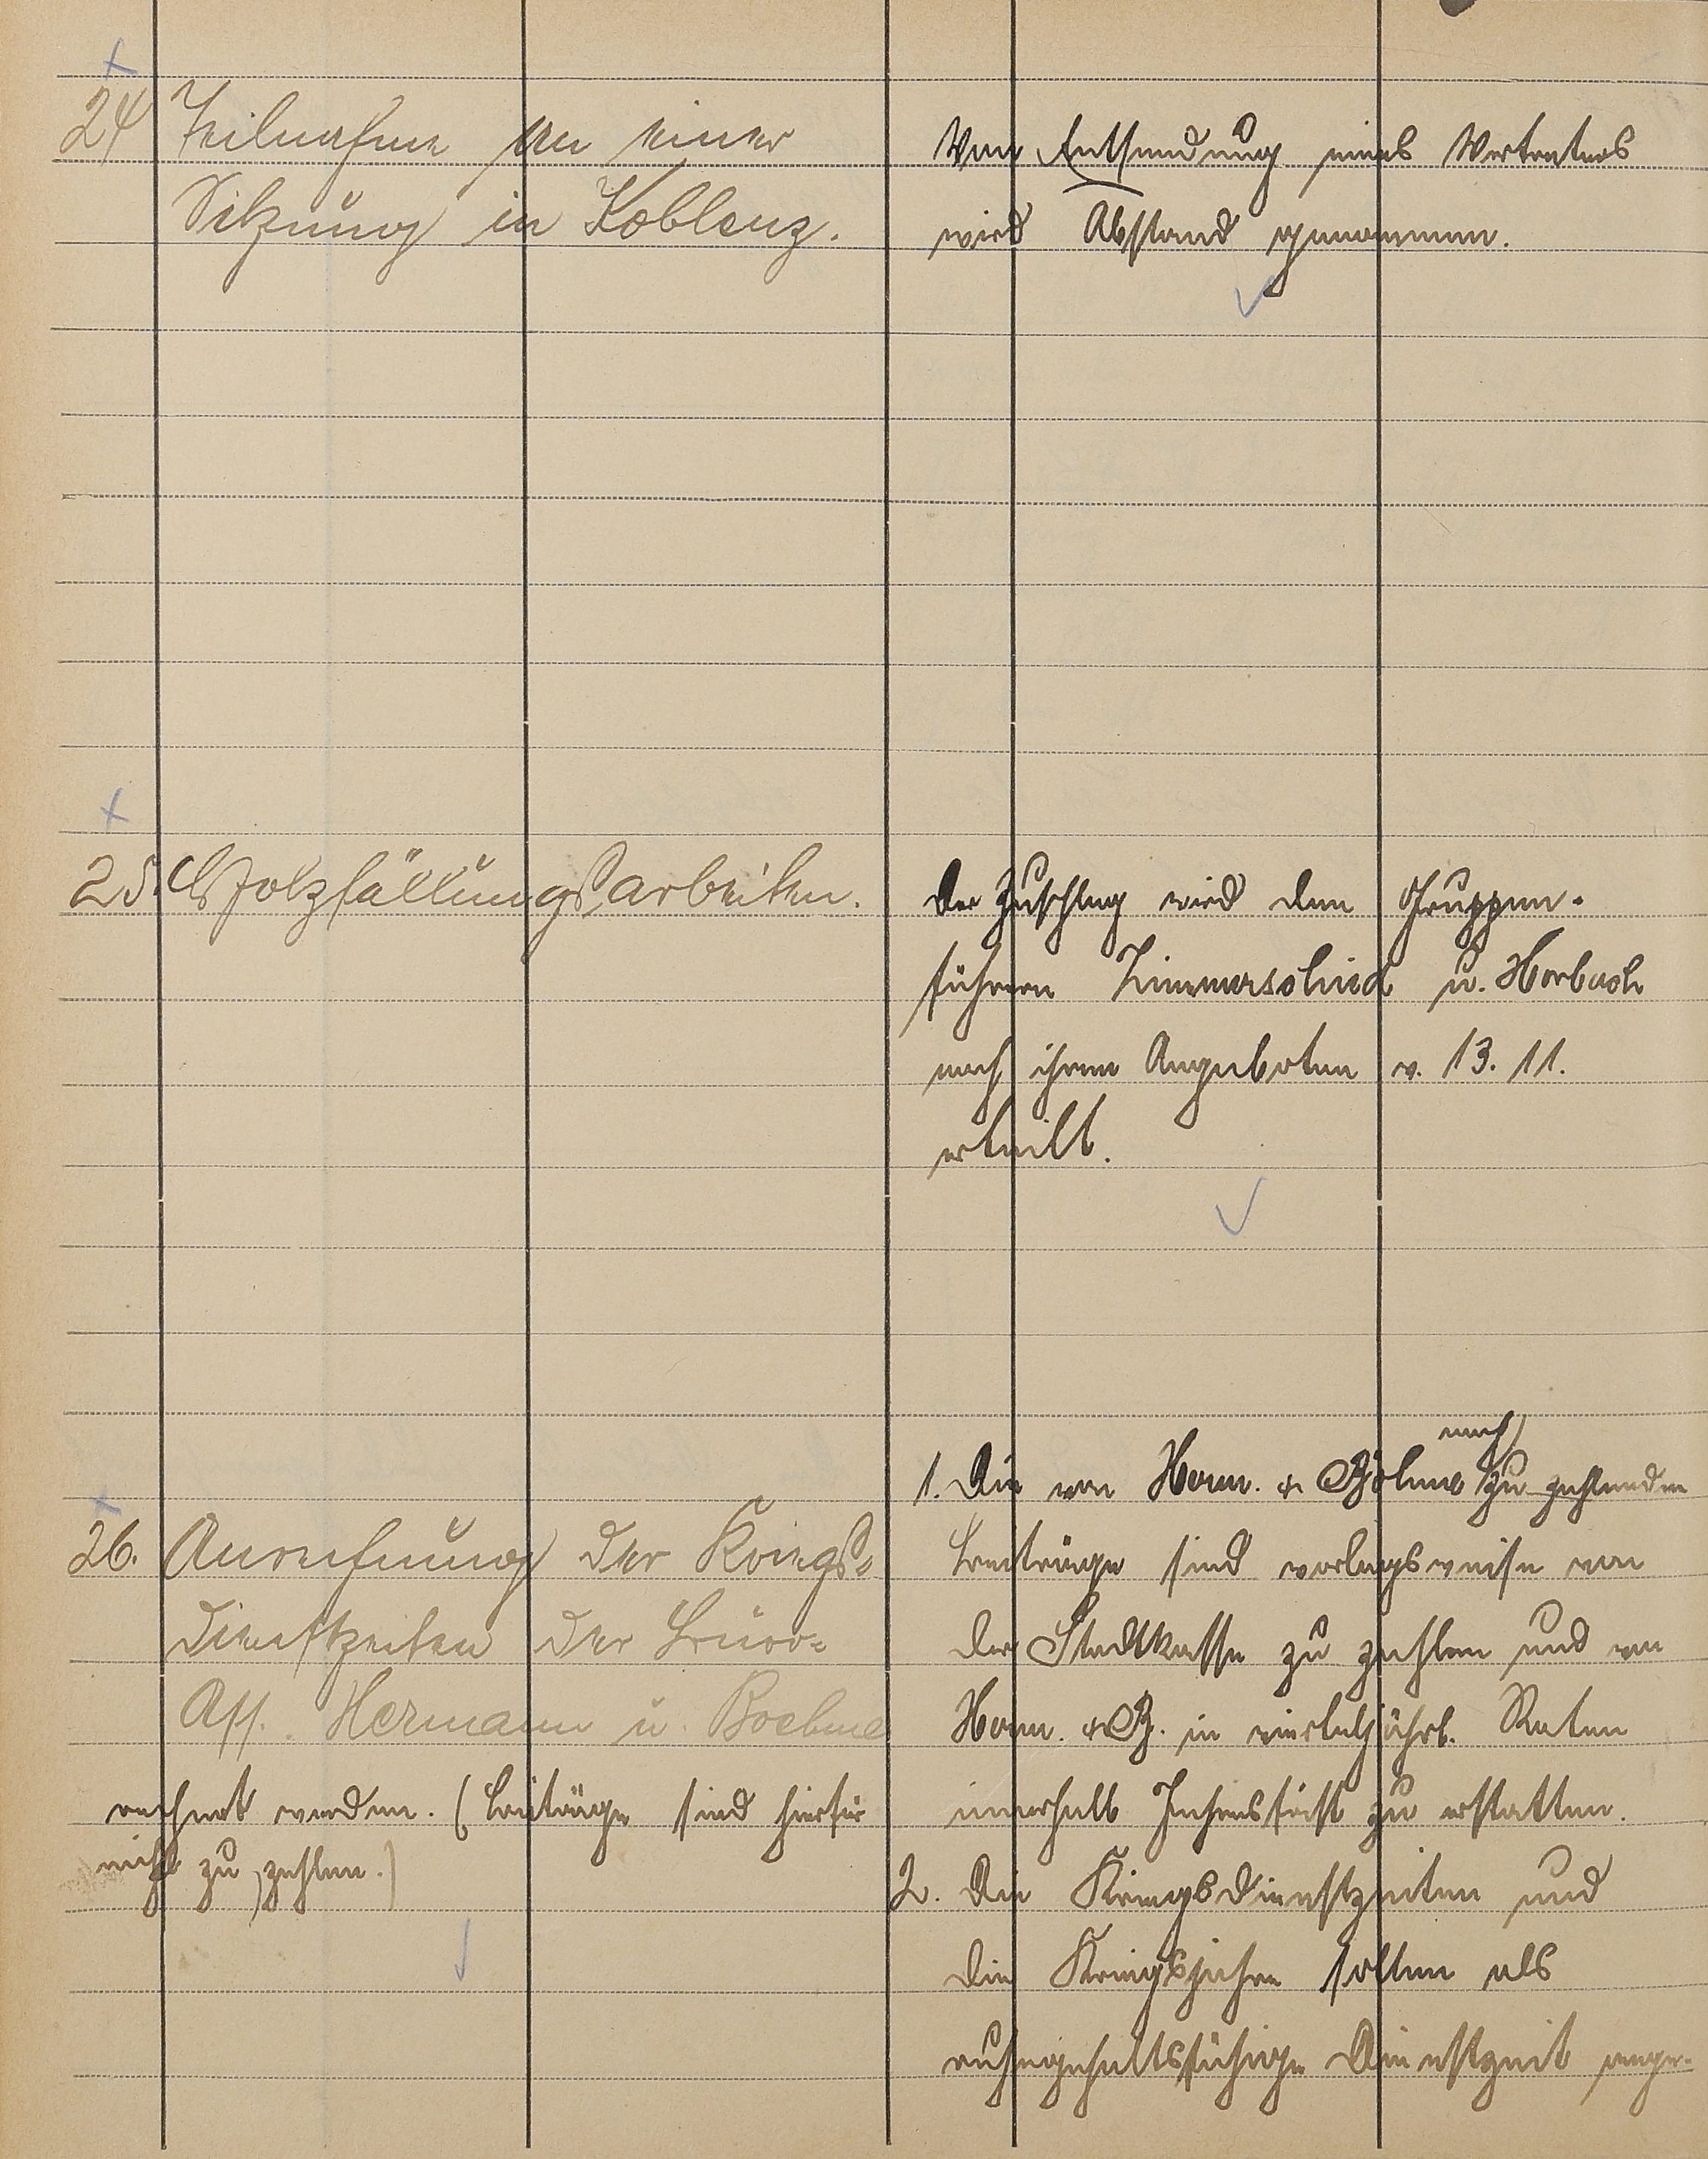 24 Teilnahme an einer
Sitzung in Koblenz.
Von Entsendung eines Vertreters
wird Abstand genommen.
25. Holzfällungsarbeiten.
Der Zuschlag wird den Gruppen-
führern Zimmerschied u. Horbach
nach ihren Angeboten v. 13. 11.
erteilt.
26. Anrechnung der Kriegs-
dienstzeiten der Büro-
Ass. Hermann u. Boehme
1. Die von Herm. + Böhme noch zu zahlenden
Beiträge sind vorlagsweise von
der Stadtkasse zu zahlen und von
Herm. + B. in vierteljährl. Raten
innerhalb Jahresfrist zu erstatten.
2. Die Kriegsdienstzeiten und
die Kriegsjahre sollen als
ruhegehaltsfähige Dienstzeit ange-
rechnet werden. (Beiträge sind hierfür
nicht zu zahlen.)